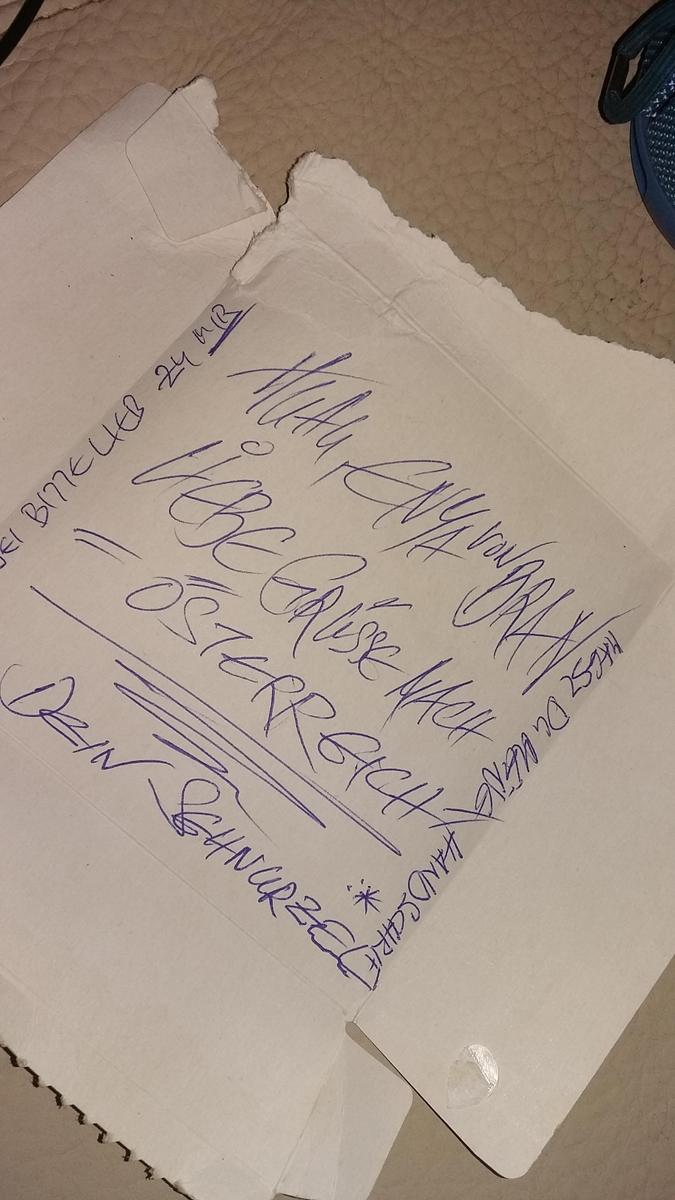 HUHU, ENYA VON BRAN
LIEBE GRÜSSE NACH
ÖSTERREICH
DEIN SCHNURZEL
SEI BITTE LIEB ZU MIR
MAGST DU MEINE HANDSCHRIFT